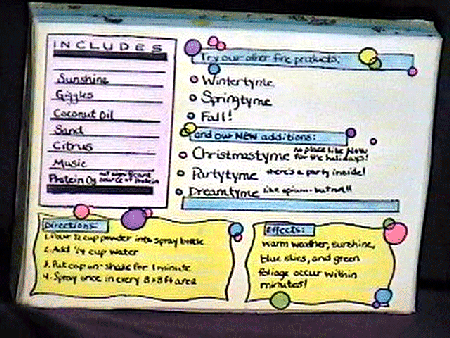 INCLUDES
Sunshine
Giggles
Coconut Oil
Sand
Citrus
Music
Protein 0g not significant source of protein
Try our other fine products:
Wintertyme
Springtyme
Fall!
and our NEW additions:
Christmastyme no place like home for the holidays!
Partytyme there's a party inside!
Dreamtyme like opium but not!!
Directions:
1. Pour 1/2 cup powder into spray bottle
2. Add 1/4 cup water
3. Put cap on - shake for 1 minute
4. Spray once in every 8x8 ft area
effects:
warm weather, sunshine,
blue skies, and green
foliage occur within
minutes!